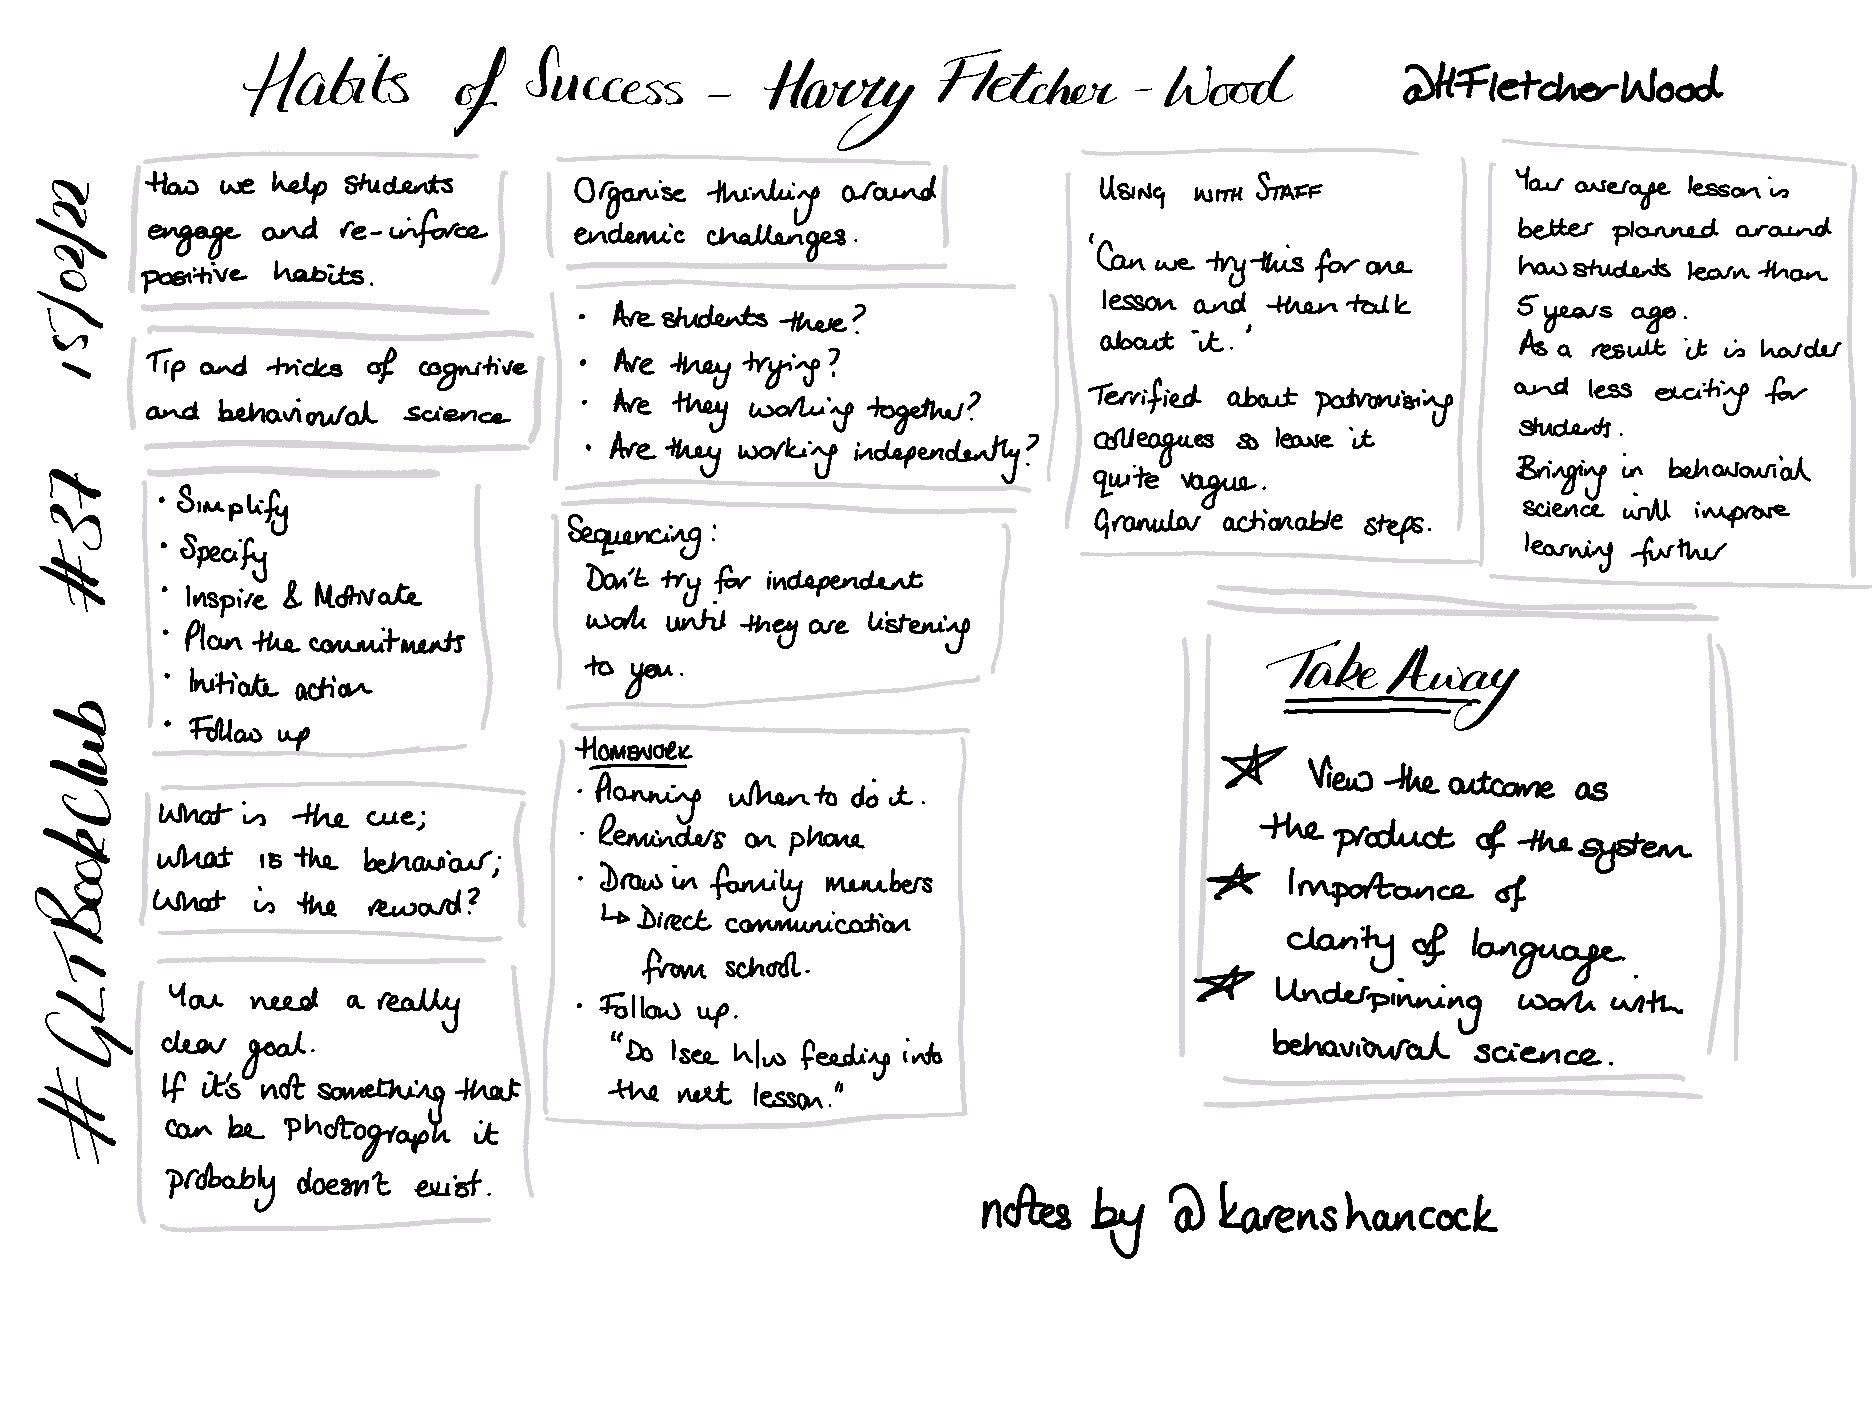 Habits of Success - Harry Fletcher-Wood
@HFletcherWood
#GLTBookClub #37 15/02/22
How we help students
engage and re-inforce
positive habits.
Tip and tricks of cognitive
and behavioural science
• Simplify
• Specify
• Inspire & Motivate
• Plan the commitments
• Initiate action
• Follow up
What is the cue;
what is the behaviour;
what is the reward?
You need a really
clear goal.
If it's not something that
can be photograph it
probably doesn't exist.
Organise thinking around
endemic challenges.
• Are students there?
• Are they trying?
• Are they working together?
• Are they working independently?
Sequencing:
Don't try for independent
work until they are listening
to you.
HOMEWORK
• Planning when to do it.
• Reminders on phone
• Draw in family members
↳ Direct communication
from school.
• Follow up.
"Do I see h/w feeding into
the next lesson."
USING WITH STAFF
'Can we try this for one
lesson and then talk
about it.'
Terrified about patronising
colleagues so leave it
quite vague.
Granular actionable steps.
Your average lesson is
better planned around
how students learn than
5 years ago.
As a result it is harder
and less exciting for
students.
Bringing in behavourial
science will improve
learning further
Take Away
☆ View the outcome as
the product of the system
☆ Importance of
clarity of language.
☆ Underpinning work with
behavioural science.
notes by @karenshancock